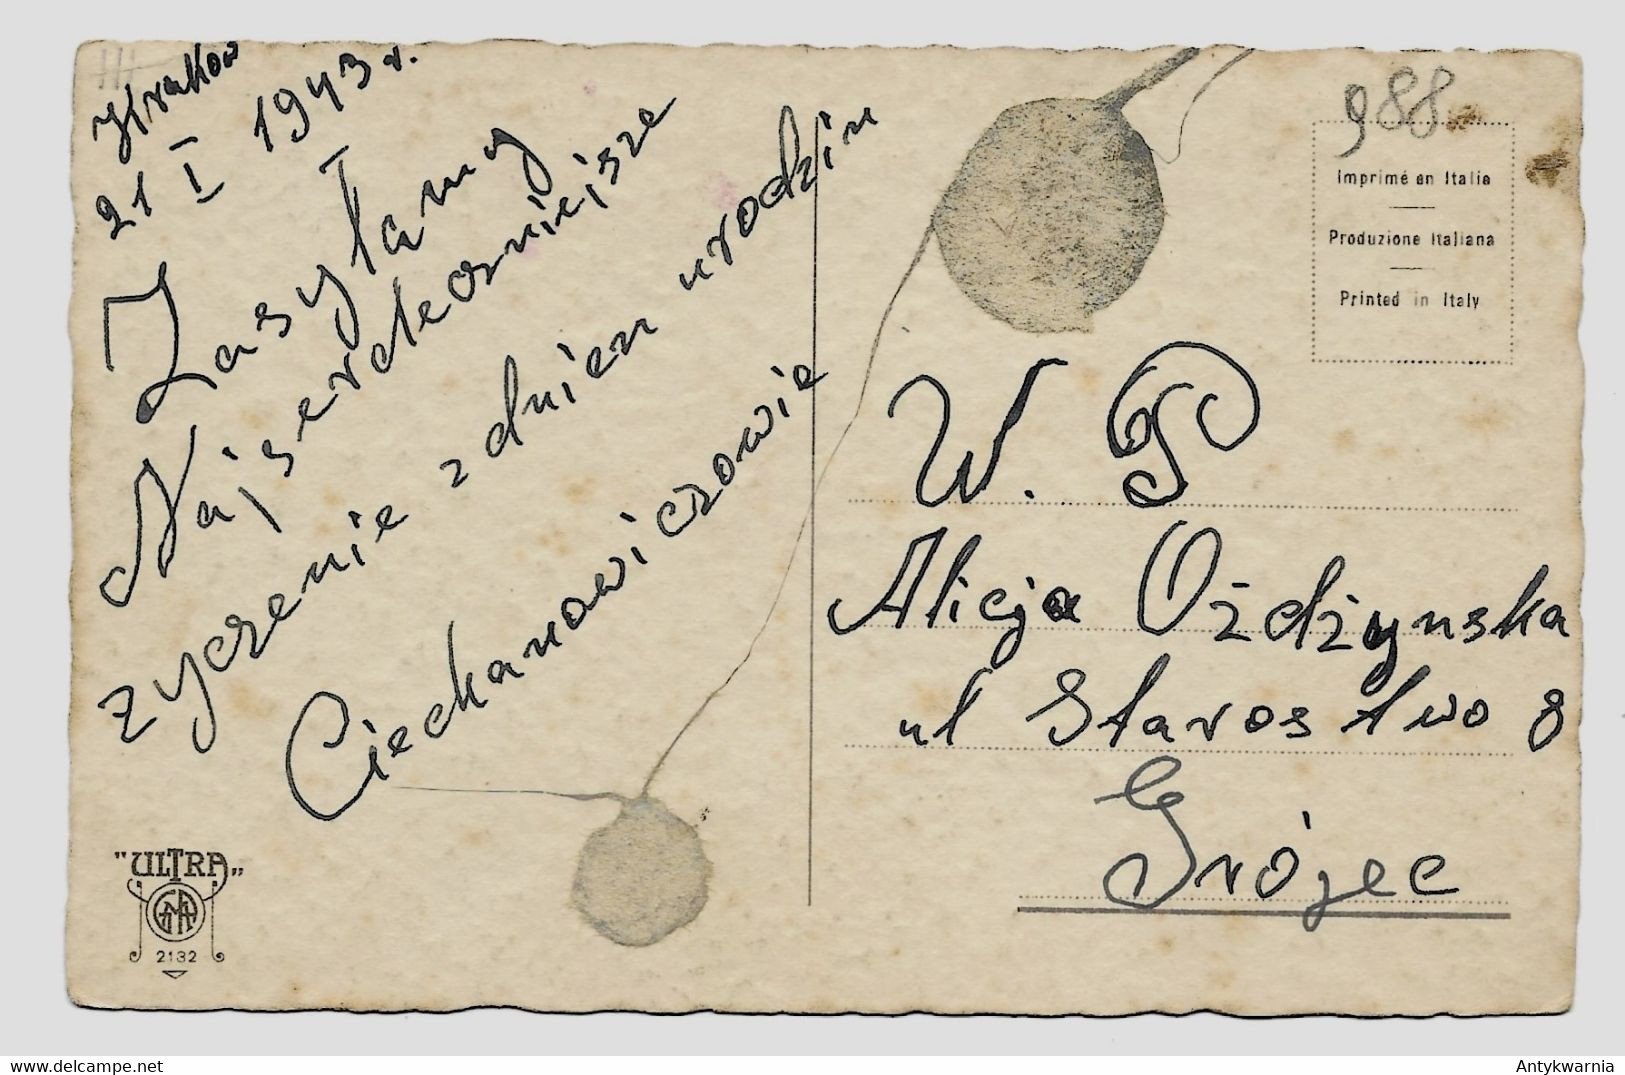 Kraków
21 I 1943 r.
Zasyłamy
Najserdeczniejsze
życzenie z dnien urodzin
Ciechanowiczowie
"ULTRA"
2132
988
Imprimé en Italie
Produzione Italiana
Printed in Italy
W. P
Alicja Ożdżynska
ul Starostwo 8
Grójec
www.delcampe.net
Antykwarnia